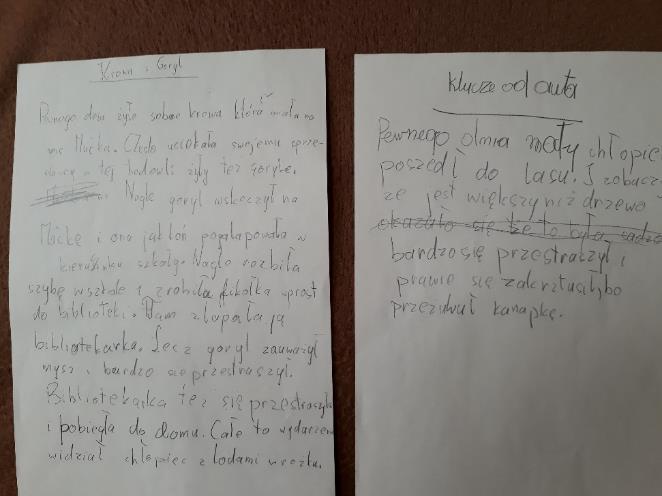 Krowa i Goryl
Pewnego dnia żyła sobie krowa która miała na
imę Mućka. Często uciekała swojemu sprze-
dawcy a tej hodowli żyły też goryle.
Nagle goryl wskoczył na
Mućkę i ona jak łoń pogalapowała w
kierunku szkoły. Nagle rozbiła
szybę w szkole i zrobiła fikołka wprost
do biblioteki. Tam złapała ją
bibliotekarka. Lecz goryl zauważył
mysz i bardzo się przestraszył.
Bibliotekarka też się przestraszyła
i pobiegła do domu. Całe to wydarzen
widział chłopiec z lodami w rożku.
Klucze od auta
Pewnego dnia mały chłopie
poszedł do lasu. I zobacz
że jest większy niż drzewa
okazało się że to była sadzo
bardzo się przestraszył i
prawie się zakrztusił, bo
przeżuwał kanapkę.